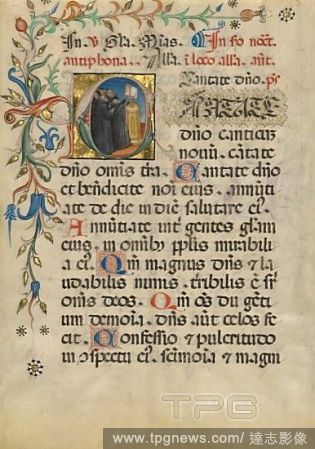 In v̄ Gl̄a Mīas. In fo noct̄.
antiphona. All̄a. i loco all̄a. ant̄.
Cantate dn̄o. ps̄
CANTATE
dn̄o canticum
novum. cātate
dn̄o omīs tr̄a. Cantate dn̄o
et bn̄dicite noī eius. annūti
ate de die in diē salutare ei᷒.
Annūtiate int̄ gentes glām
eius. in om̄ib᷒ pplīs mirabili
a ei᷒. Qm̄ magnus dn̄s et la
udabilis nimis. tr̄ribilis ē sr̄
omīs deos. Qm̄ om̄s dii gētī
um demōia. dn̄s aut̄ celos fe
cit. Confessio et pulcritudo
in 9spectu ei᷒. sc̄imoīa et magni
TPG
www.tpgnews.com/ 達志影像